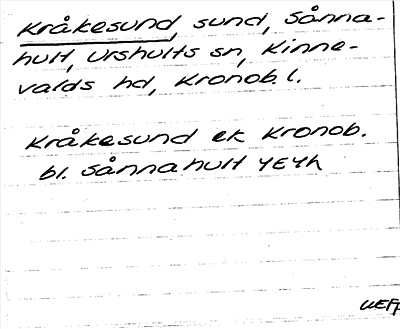 Kråkesund, sund, Sånna-
hult, Urshults sn, Kinne-
valds hd, Kronob. l.
Kråkesund ek Kronob.
bl. Sånnahult 4E4h